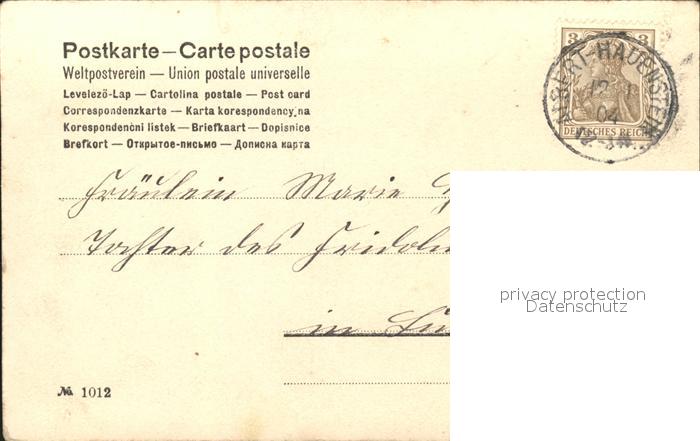 Postkarte — Carte postale
Weltpostverein — Union postale universelle
Levelező-Lap — Cartolina postale — Post card
Correspondenzkarte — Karta korespondencyjna
Korespondenční listek — Briefkaart — Dopisnice
Brefkort — Открытое-письмо — Дописна карта
3 3
DEUTSCHES REICH
ALBERT-HAUENSTEIN
12
04
Fräulein Marie
Tochter des Fridolin
in
privacy protection
Datenschutz
№ 1012